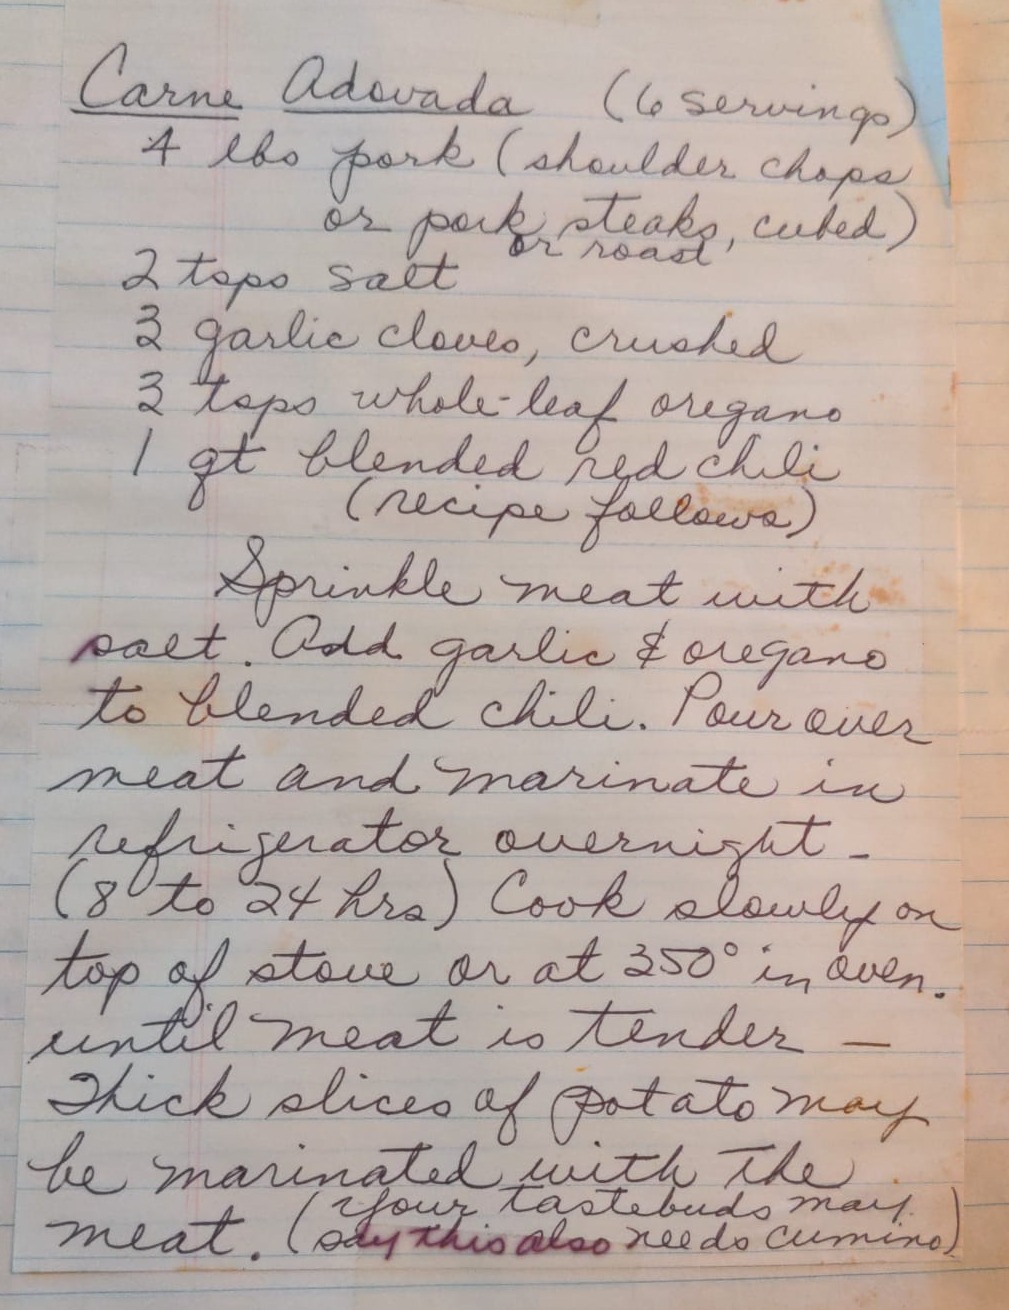 Carne Adovada (6 servings)
4 lbs pork (shoulder chops
or pork steaks, cubed)
or roast
2 tsps salt
3 garlic cloves, crushed
3 tsps whole-leaf oregano
1 qt blended red chili
(recipe follows)
Sprinkle meat with
salt. Add garlic & oregano
to blended chili. Pour over
meat and marinate in
refrigerator overnight -
(8 to 24 hrs) Cook slowly on
top of stove or at 350° in oven.
until meat is tender —
Thick slices of potato may
be marinated with the
meat. (Your tastebuds may
say this also needs cumino)